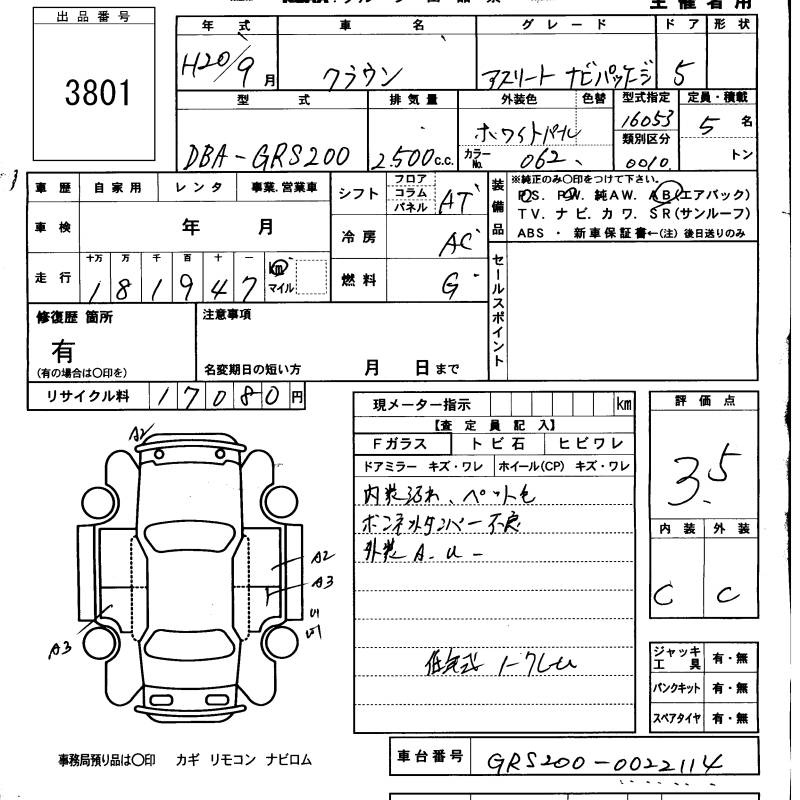 主催者用
出品番号
3801
年式 車名 グレード ドア 形状
H20/9月 クラウン アスリート ナビパッケージ 5
型式 排気量 外装色 色替 型式指定 定員・積載
16053 5名
DBA-GRS200 2500c.c. ホワイトパール 類別区分
カラーNo. 062 0010 トン
車歴 自家用 レンタ 事業.営業車 シフト フロア コラム パネル AT
装備品 ※純正のみ○印をつけて下さい。
PS. PW. 純AW. AB(エアバック)
TV. ナビ. カワ. SR(サンルーフ)
ABS ・ 新車保証書←(注) 後日送りのみ
車検 年 月 冷房 AC
走行 十万 万 千 百 十 一
181947 km マイル 燃料 G
セールスポイント
修復歴 箇所 注意事項
有
(有の場合は○印を) 名変期日の短い方 月 日まで
リサイクル料 17080円
現メーター指示 km
【査定員記入】
Fガラス トビ石 ヒビワレ
ドアミラー キズ・ワレ ホイール(CP) キズ・ワレ
内装汚れ、ペット毛
ボンネットダンパー不良
外装 A.U-
評価点
3.5
内装 外装
C C
A2
A2
A3
A3
ジャッキ工具 有・無
パンクキット 有・無
スペアタイヤ 有・無
事務局預り品は○印 カギ リモコン ナビロム
車台番号 GRS200-0022114